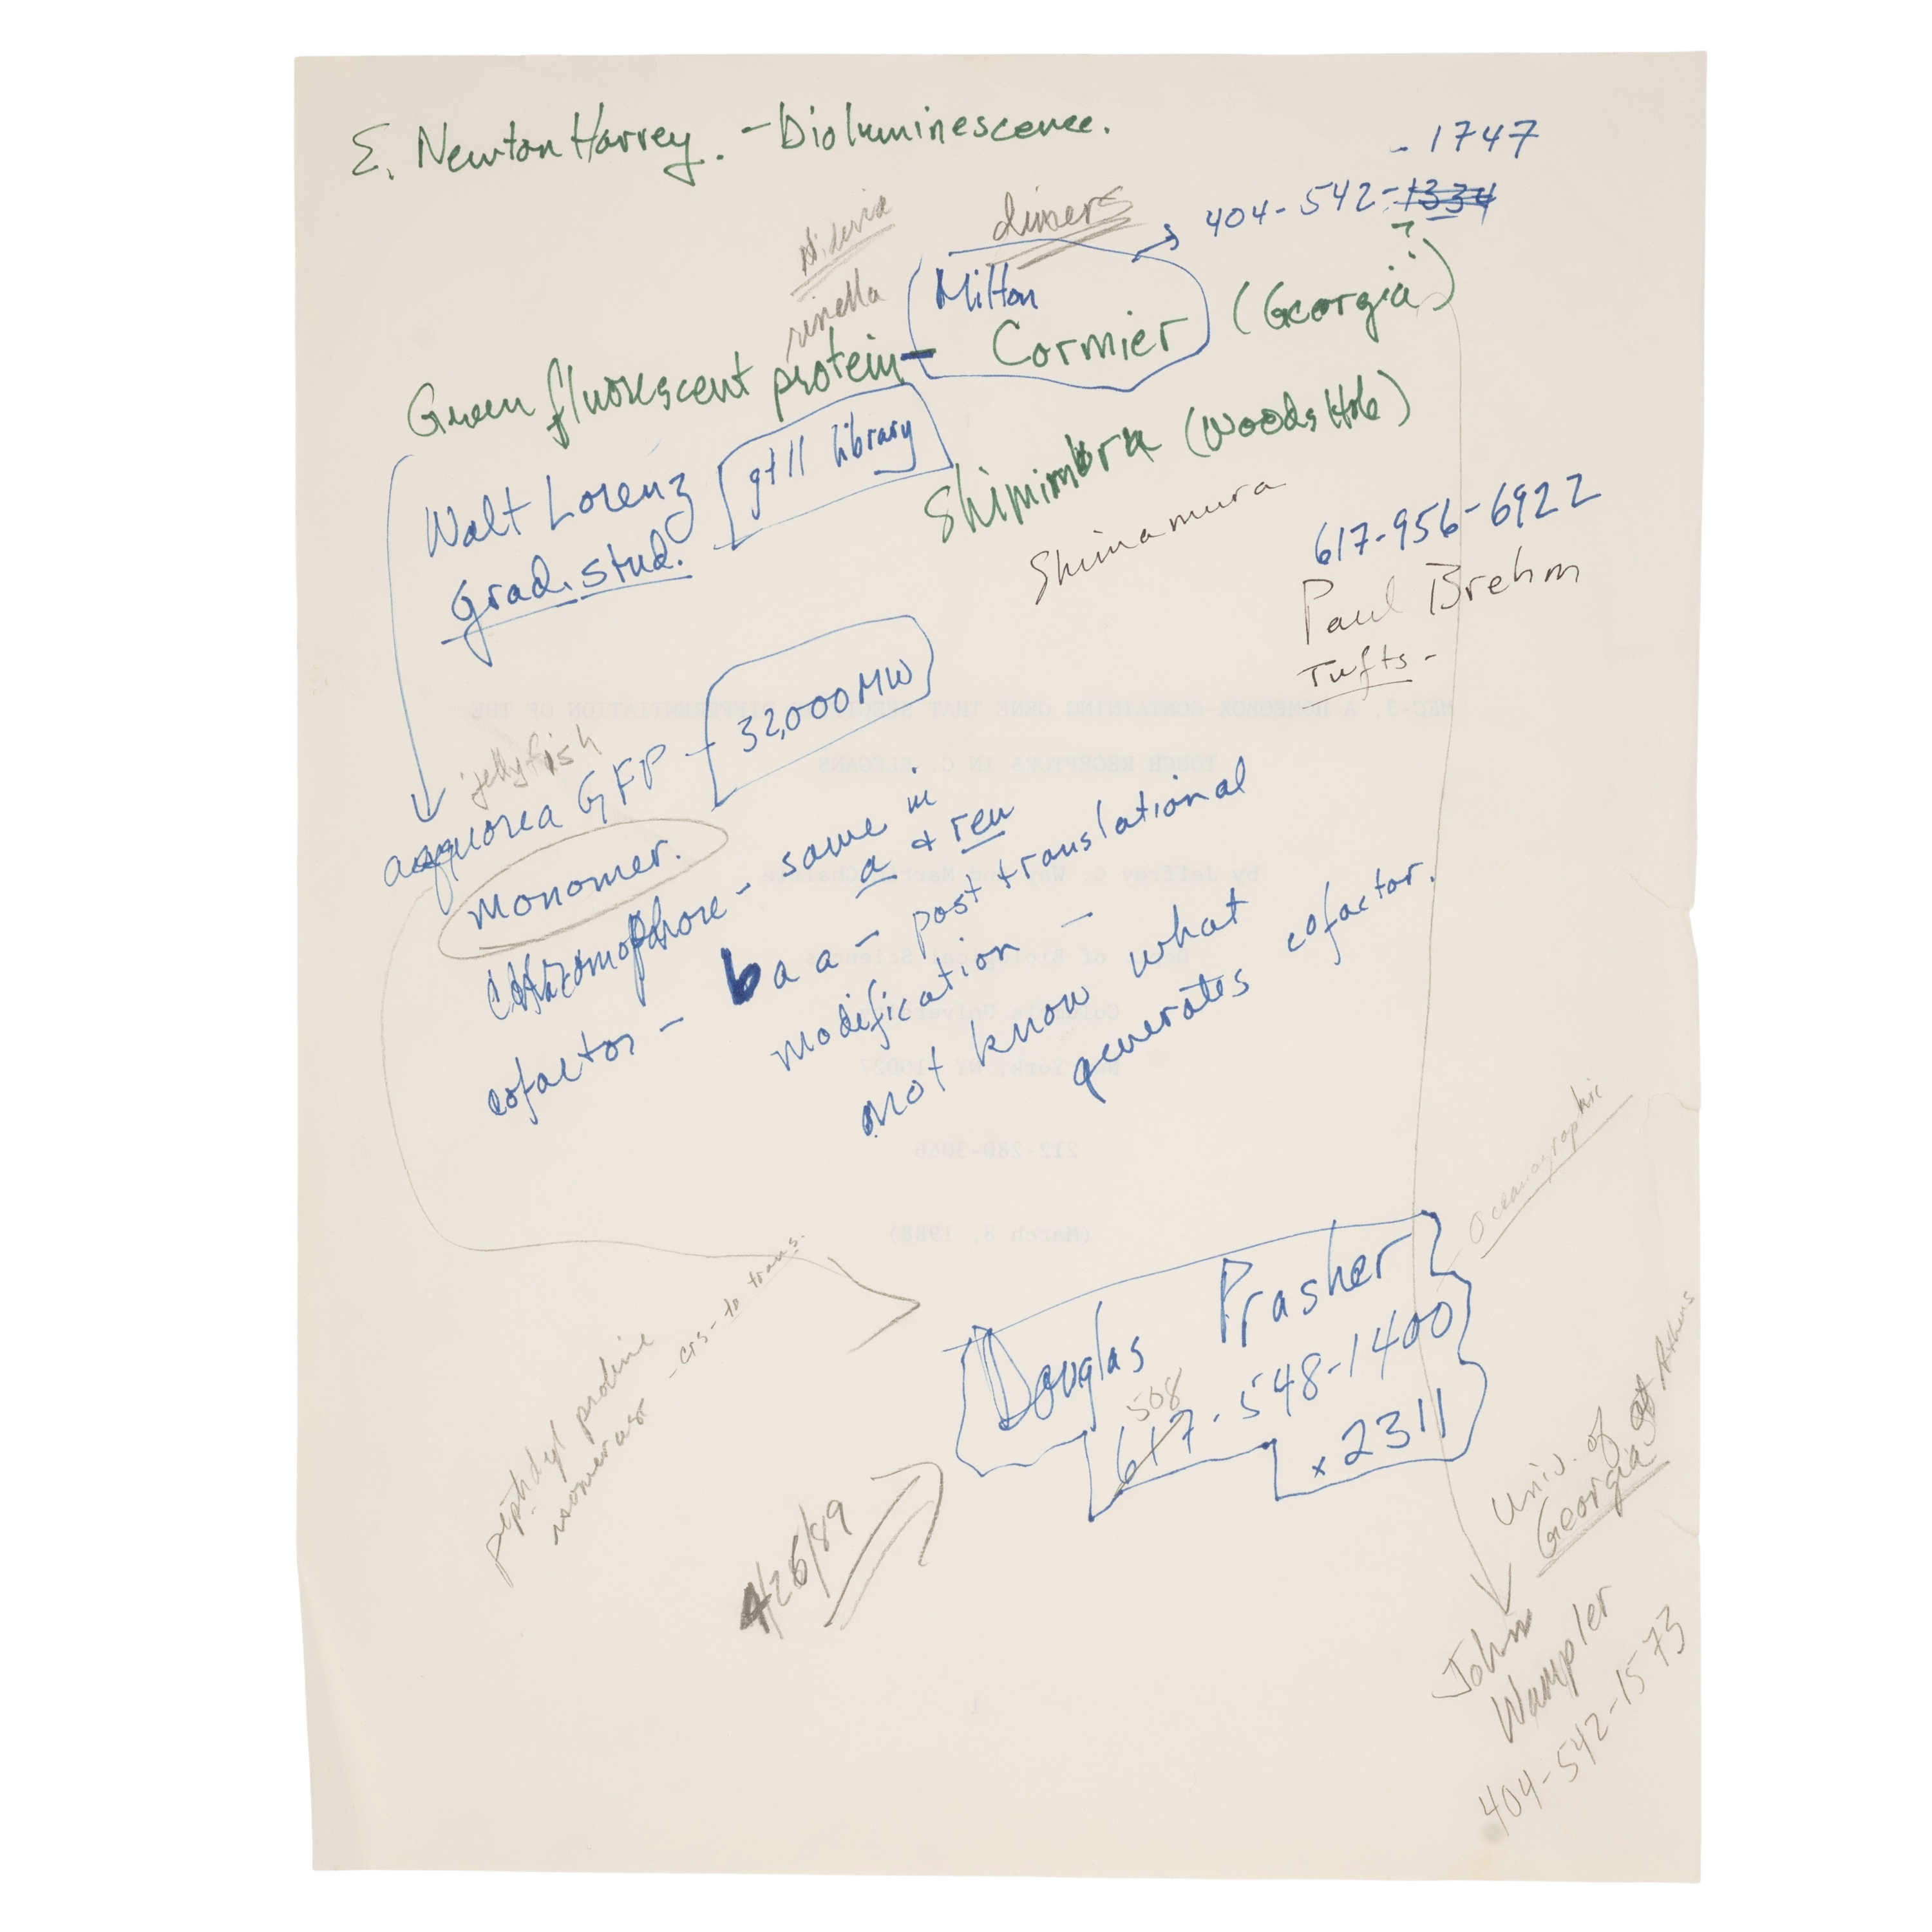 E. Newton Harvey. - Bioluminescence.
- 1747
404-542-1334
?
dimers
renilla
Milton
Green fluorescent protein - Cormier (Georgia)
gt11 library
Shimimura (Woods Hole)
Shimamura
Walt Lorenz
grad. stud.
617-956-6922
Paul Brehm
Tufts -
32,000 MW
jellyfish
aequorea GFP -
monomer.
chromophore - same in
a & ren
cofactor - 6 aa - post translational
modification -
not know what
generates cofactor.
MEC-3, A HOMEOBOX-CONTAINING GENE THAT DIFFERENTIATION OF THE
TOUCH RECEPTORS IN C. ELEGANS
by Jeffrey C. Way
212-280-3066
(March 8, 1988)
Oceanographic
Douglas Prasher
508
617-548-1400
x 2311
peptidyl proline
isomerase - cis- to trans.
4/26/89
Univ. of
Georgia at Athens
John
Wampler
404-542-1573
1